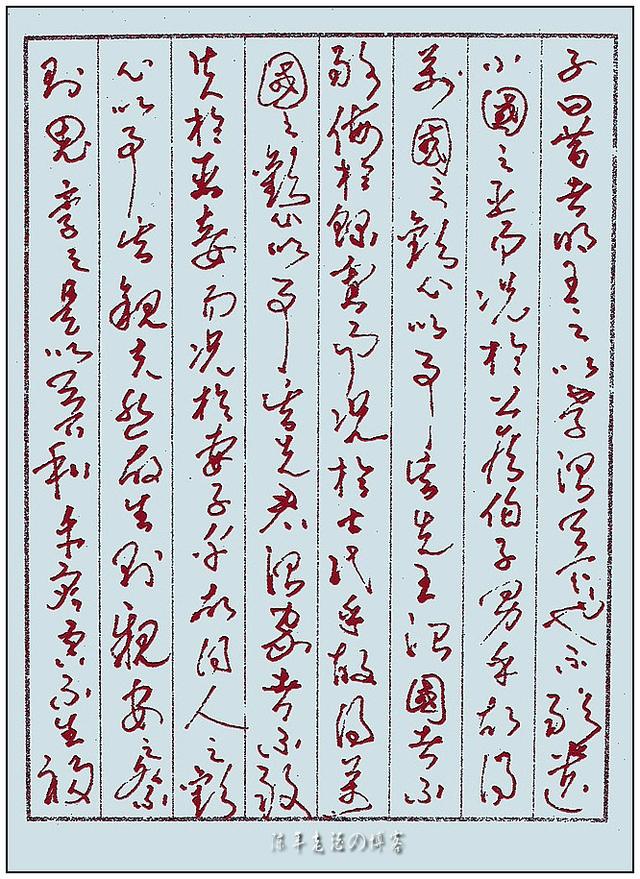 子曰昔者明王之以孝治天下也不敢遺
小國之臣而況於公侯伯子男乎故得
萬國之歡心以事其先王治國者不
敢侮於鰥寡而況於士民乎故得萬
國之歡心以事其先君治家者不敢
失於臣妾而況於妻子乎故得人之歡
心以事其親夫然故生則親安之祭
則鬼享之是以天下和平灾害不生禍
の博客